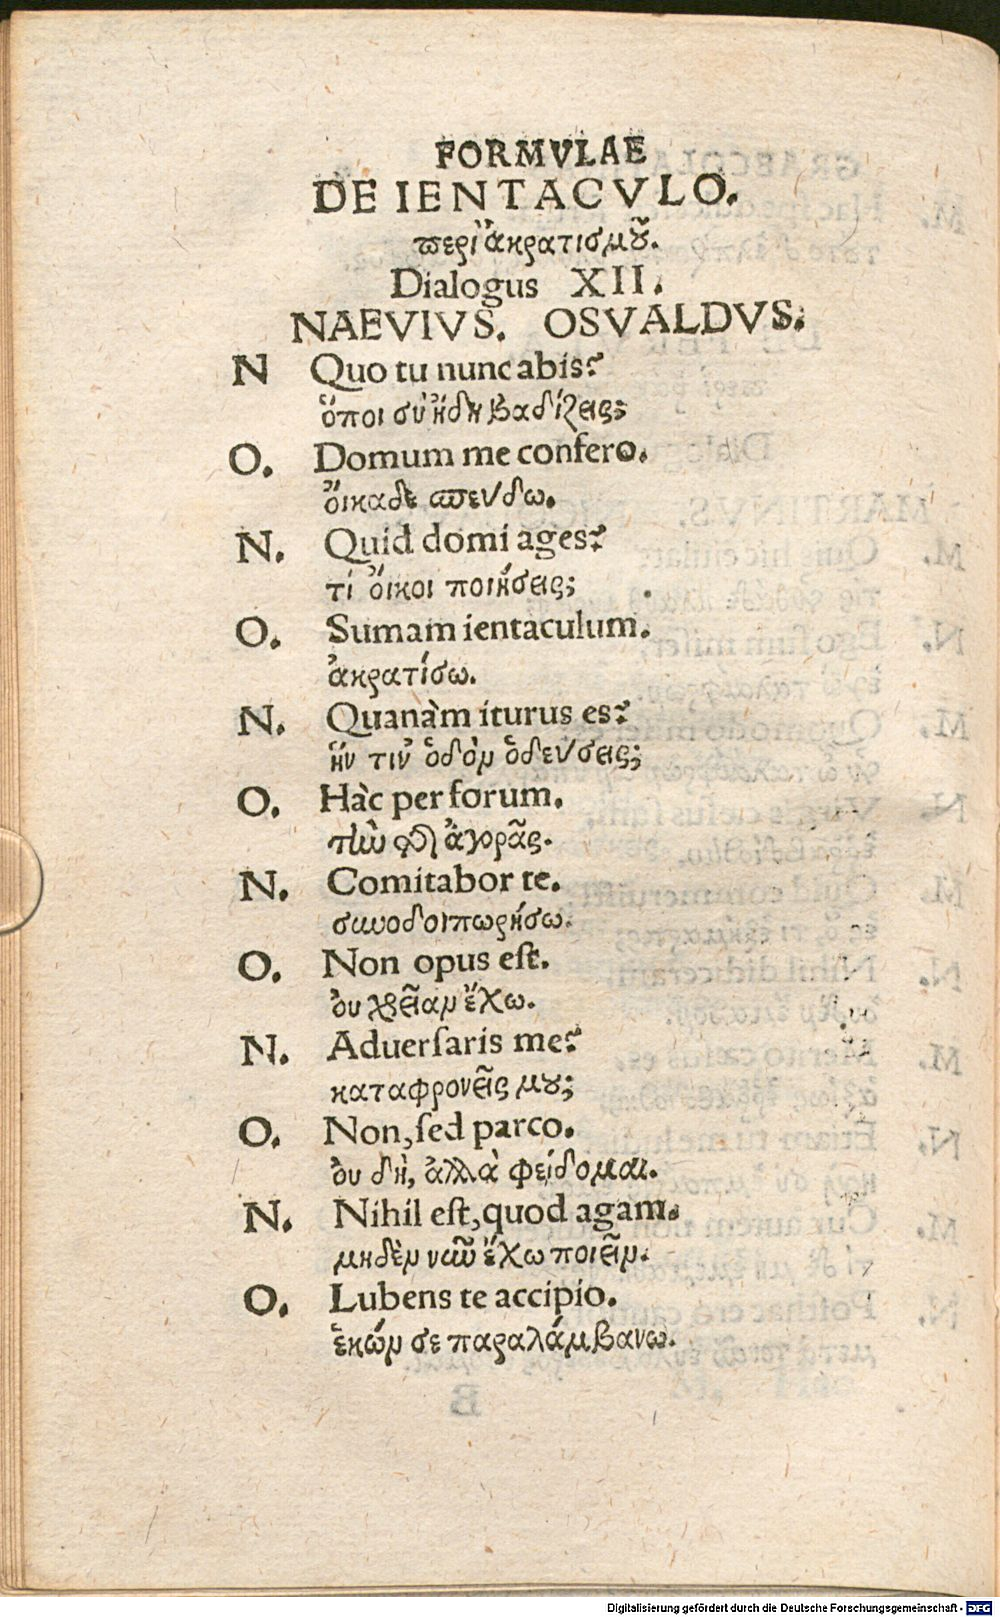 FORMVLAE
DE IENTACVLO.
περὶ ἀκρατισμοῦ.
Dialogus XII.
NAEVIVS. OSVALDVS.
N Quo tu nunc abis?
ὅποι σὺ ἤδη βαδίζεις;
O. Domum me confero.
ὄικαδε σπεύδω.
N. Quid domi ages?
τί ὄικοι ποιήσεις;
O. Sumam ientaculum.
ἀκρατίσω.
N. Quanàm iturus es?
ἥν τιν' ὁδὸν ὁδεύσεις;
O. Hàc per forum.
τὴν ἀγορᾶς.
N. Comitabor te.
συνοδοιπωρήσω.
O. Non opus est.
ὀυ χρεῖαν ἔχω.
N. Aduerſaris me?
καταφρονεῖς μου;
O. Non, ſed parco.
ὀυ δὴ, ἀλλὰ φείδομαι.
N. Nihil est, quod agam.
μηδὲν νῦν ἔχω ποιεῖν.
O. Lubens te accipio.
ἑκών σε παραλάμβανω.
Digitalisierung gefördert durch die Deutsche Forschungsgemeinschaft - DFG